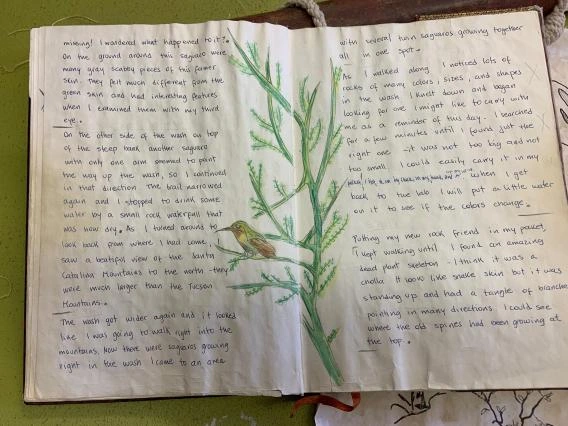 missing! I wondered what happened to it?
On the ground around this saguaro were
many gray scabby pieces of this former
skin. They felt much different from the
green skin and had interesting features
when I examined them with my third
eye.
On the other side of the wash on top
of the steep bank another saguaro
with only one arm seemed to point
the way up the wash, so I continued
in that direction. The trail narrowed
again and I stopped to drink some
water by a small rock waterfall that
was now dry. As I turned around to
look back from where I had come, I
saw a beautiful view of the Santa
Catalina Mountains to the north - they
were much larger than the Tucson
Mountains.
The wash got wider again and it looked
like I was going to walk right into the
mountains. Now there were saguaros growing
right in the wash. I came to an area
with several twin saguaros growing together
all in one spot.
As I walked along I noticed lots of
rocks of many colors, sizes, and shapes
in the wash. I knelt down and began
looking for one I might like to carry with
me as a reminder of this day. I searched
for a few minutes until I found just the
right one - it was not too big and not
too small. I could easily carry it in my
When I get
back to the lab I will put a little water
on it to see if the colors change.
Putting my new rock friend in my pocket,
I kept walking until I found an amazing
dead plant skeleton - I think it was a
cholla. It look like snake skin but it was
standing up and had a tangle of branches
pointing in many directions. I could see
where the old spines had been growing at
the top.